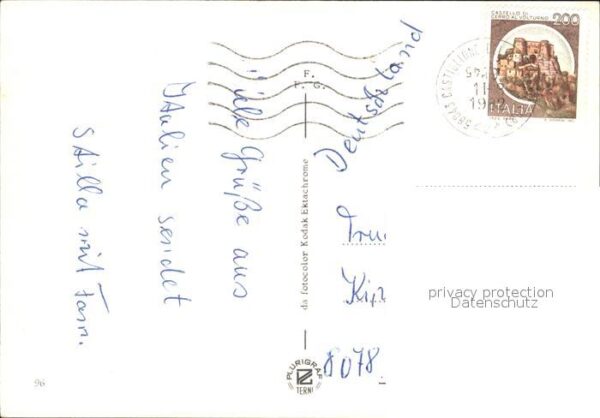 Viele Grüße aus
Italien sendet
Stilla mit Fam.
Deutschland
8078
privacy protection
Datenschutz
da fotocolor Kodak Ektachrome
PLURIGRAF
TERNI
F.
T. G.
CASTELLO DI
CERRO AL VOLTURNO
200
ITALIA
96